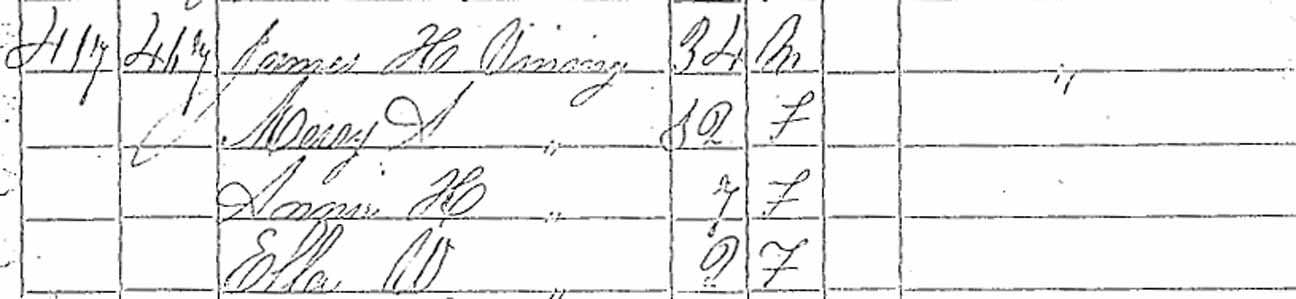 417 417 James H Vining 34 M "
Mary A " 32 F
Annie H " 7 F
Ella W " 2 F